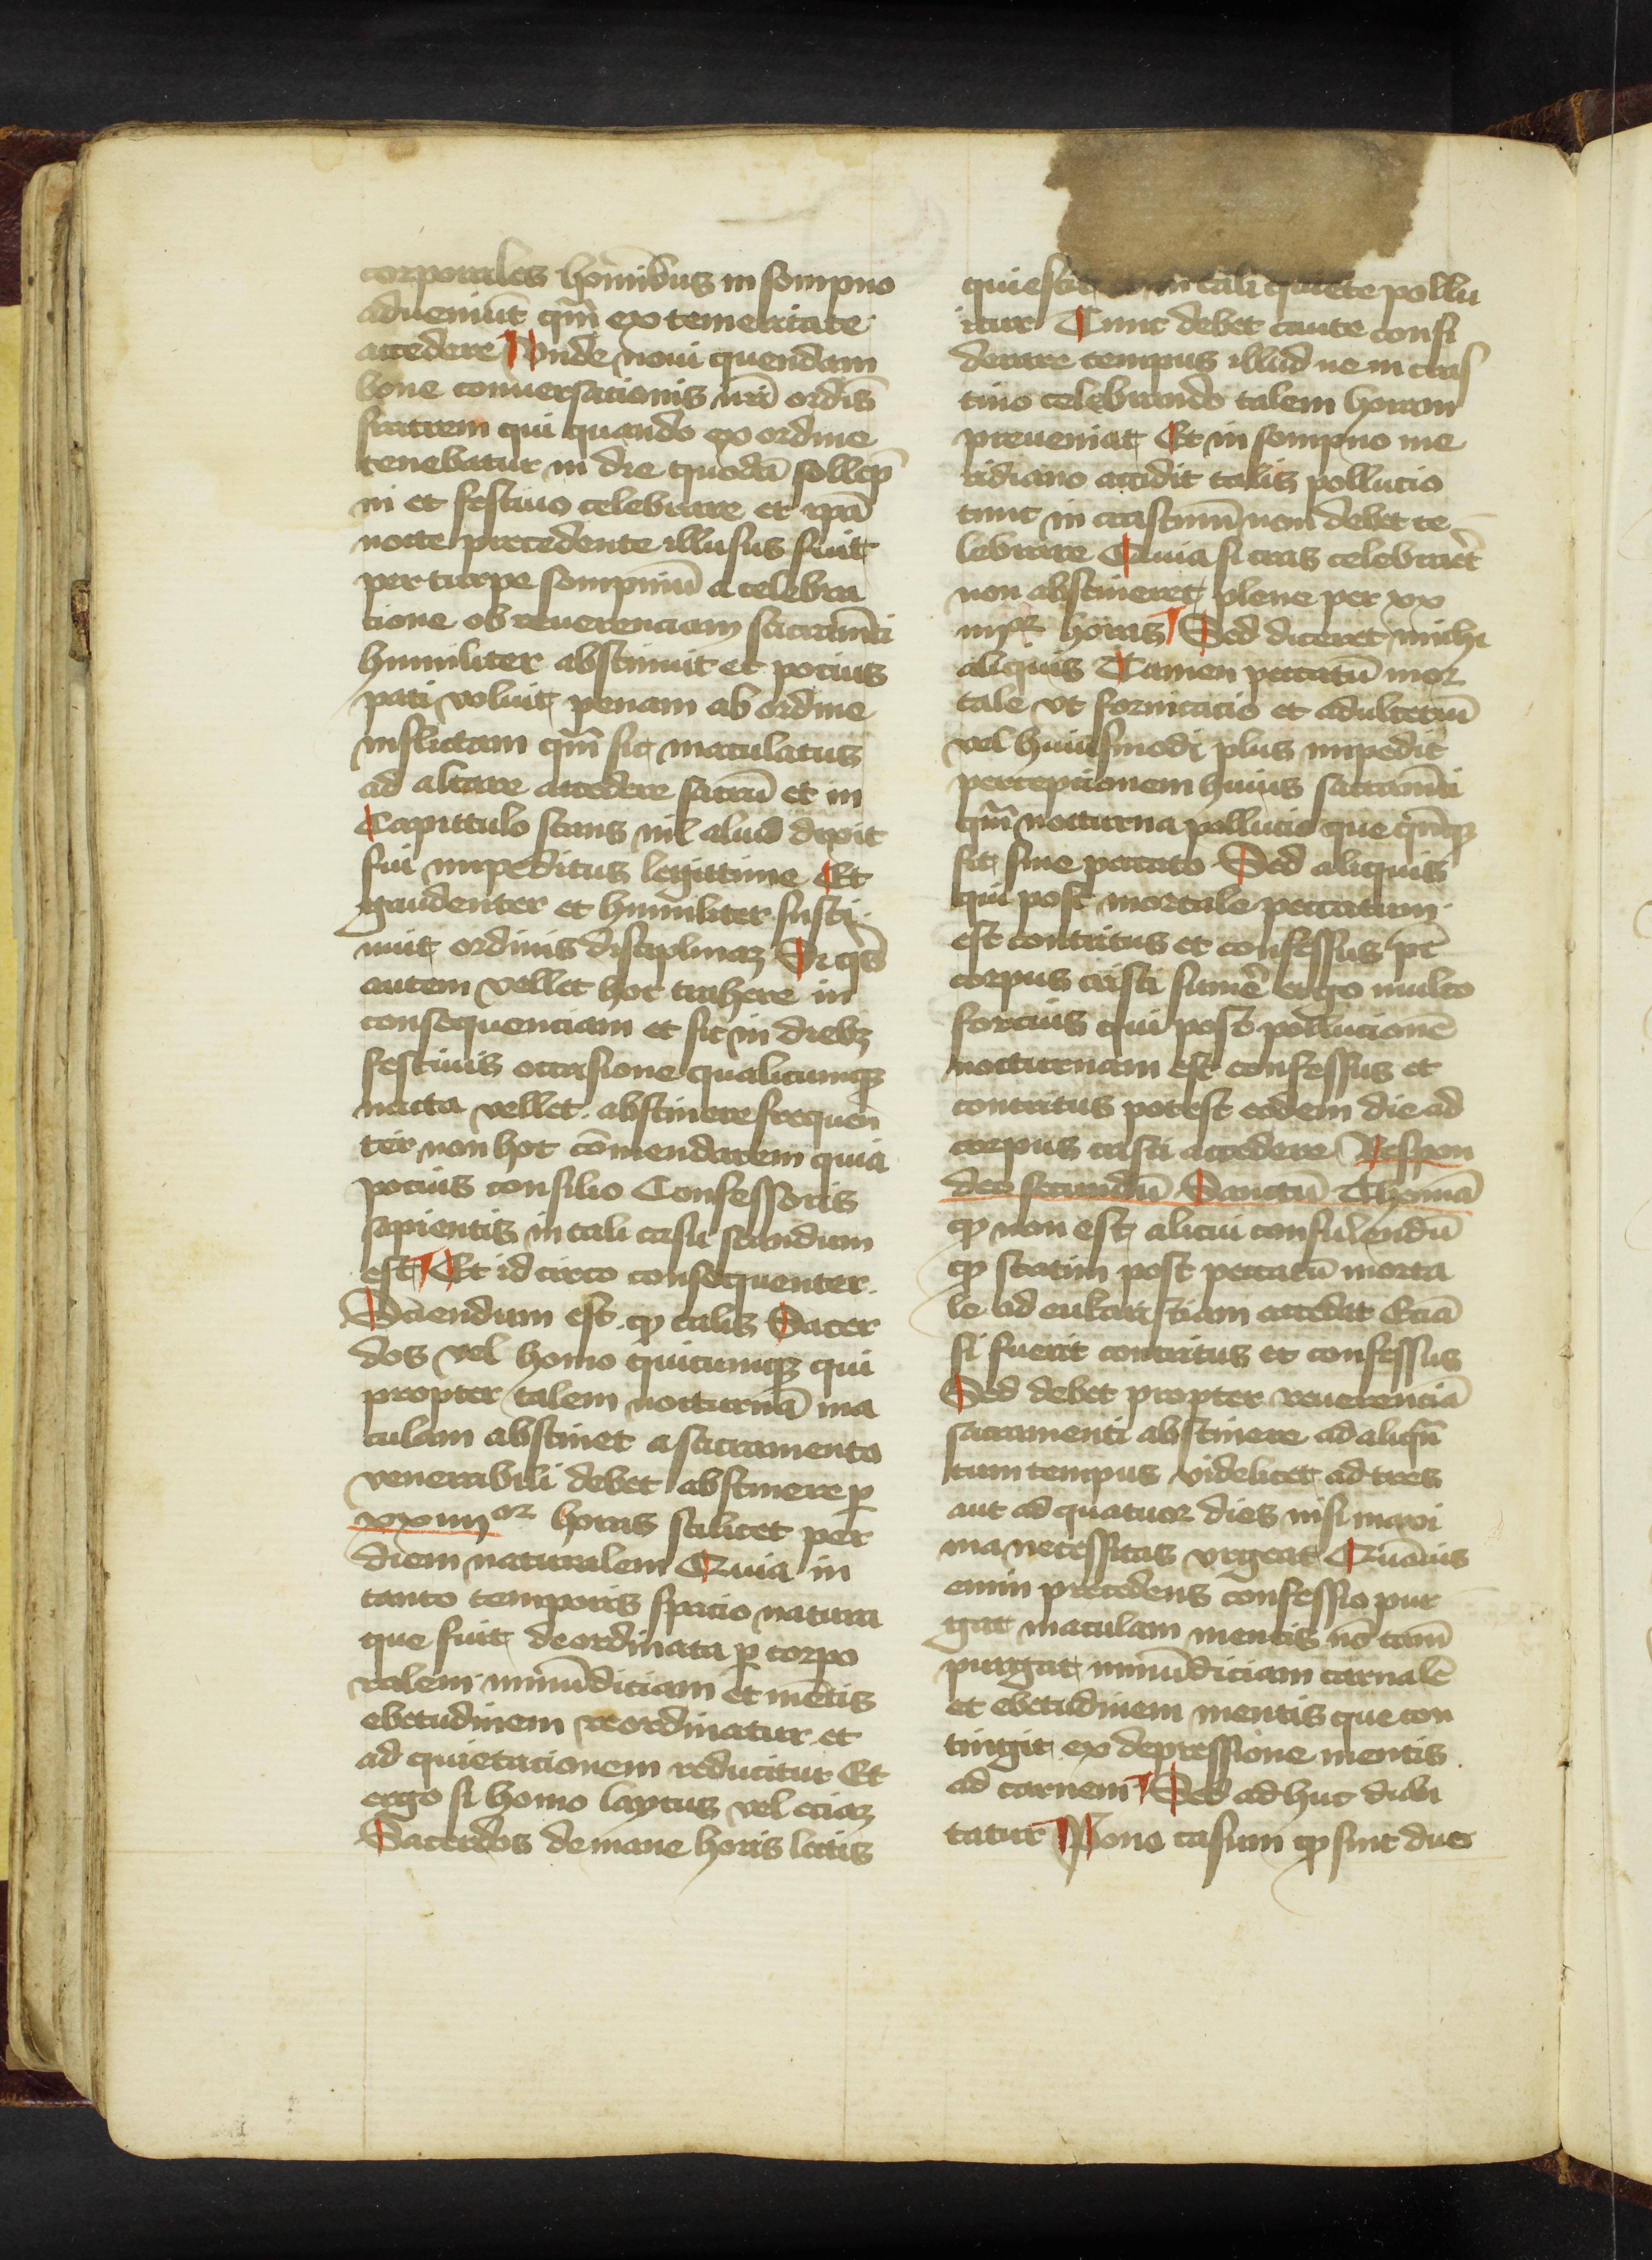 corporales hoībus in sompno
adueniūt qm̄ ex temeritate
accedere Vnde noui quendam
bone conuersacionis nr̄i ordīs
fratrem qui quando ex ordine
tenebatur in die quodā sollēp
ni et festiuo celebrare et ipā
nocte precedente illusus fuit
per turpe sompniū a celebra
tione ob reuerenciam sacramēti
humiliter abstinuit et pocius
pati voluit penam ab ordine
inflictam qm̄ sic maculatus
ad altare accedere sacrū et in
Capittulo stans nil aliud dixit
fui impeditus legittime Et
gaudenter et humiliter susti
nuit ordinis disciplinaꝫ Si qs
autem vellet hoc trahere in
consequenciam et sic in diebꝫ
festiuis occasione qualicumqꝫ
nacta vellet abstinere frequen
ter non hoc cōmendarem quia
pocius consilio Confessoris
sapientis in tali casu standum
est Et id circo consequenter
Sciendum est ꝙ talis Sacer
dos vel homo quicumqꝫ qui
propter talem nocturnā ma
culam abstinet a sacramento
venerabili debet abstinere ꝑ
xxiiijor horas scilicet per
diem naturalem Quia in
tanto temporis spacio natura
que fuit deordinata ꝑ corpo
ralem inmūdiciam et mētis
ebetudinem reordinatur et
ad quietacionem reducitur Et
ergo si homo laycus vel eciaꝫ
Sacerdos de mane horis lectis
quiescit in tali quiete pollu
itur Tunc debet caute consi
derare tempus illud ne in cras
tino celebrando talem horam
preueniat Et in sompno me
ridiano accidit talis pollucio
tunc in crastinū non debet ce
lebrare Quia si cras celebraret
non abstineret plene per xx
iiijor horas Sed diceret michi
aliquis Tamen peccatū mor
tale vt fornicacio et adulteriū
vel huiusmodi plus impedit
percepcionem huius sacramēti
qm̄ nocturna pollucio que qn̄qꝫ
fit sine peccato Sed aliquis
qui post mortale peccatum
est contritus et confessus pt̄
corpus cristi sumē ergo multo
forcius qui post pollucionē
nocturnam est confessus et
contritus potest eodem die ad
corpus cristi accedere Respon
deo secundū Sanctū Thomā
ꝙ non est alicui consulendū
ꝙ statim post peccatū morta
le ad eukaristiam accedat Eciā
si fuerit contritus et confessus
Sed debet propter reuerenciā
sacramenti abstinere ad aliqn̄
tum tempus videlicet ad tres
aut ad quatuor dies nisi maxi
ma necessitas vrgeat Quāuis
enim precedens confessio pur
gat maculam mentis nō tam̄
purgat inmūdiciam carnalē
et ebetudinem mentis que con
tingit ex depressione mentis
ad carnem Sed ad huc dubi
tatur Pono casum ꝙ sint duo